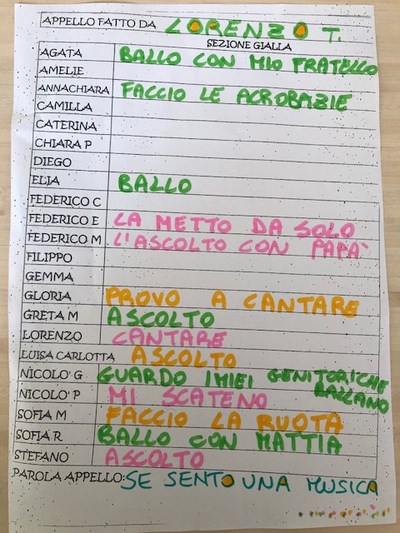 APPELLO FATTO DA LORENZO T.
SEZIONE GIALLA
AGATA BALLO CON MIO FRATELLO
AMELIE
ANNACHIARA FACCIO LE ACROBAZIE
CAMILLA
CATERINA
CHIARA P
DIEGO
ELIA BALLO
FEDERICO C
FEDERICO E LA METTO DA SOLO
FEDERICO M L'ASCOLTO CON PAPA'
FILIPPO
GEMMA
GLORIA PROVO A CANTARE
GRETA M ASCOLTO
LORENZO CANTARE
LUISA CARLOTTA ASCOLTO
NICOLO' G GUARDO I MIEI GENITORI CHE
BALLANO
NICOLO' P MI SCATENO
SOFIA M FACCIO LA RUOTA
SOFIA R BALLO CON MATTIA
STEFANO ASCOLTO
PAROLA APPELLO: SE SENTO UNA MUSICA